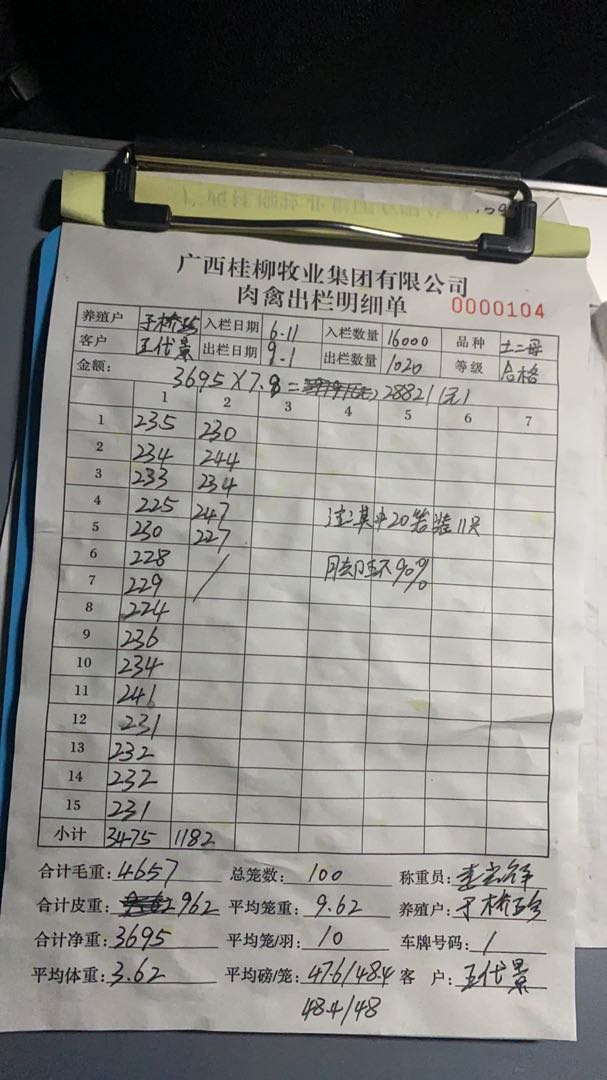 广西桂柳牧业集团有限公司
肉禽出栏明细单 0000104
养殖户 于桥珍 入栏日期 6.11 入栏数量 16000 品种 土二母
客户 王代景 出栏日期 9.1 出栏数量 1020 等级 合格
金额: 3695×7.8= 28821(元)
1 2 3 4 5 6 7
1 235 230
2 234 244
3 233 234
4 225 247 注:其中20笼装11只
5 230 227
6 228 90%
7 229
8 224
9 236
10 234
11 241
12 231
13 232
14 232
15 231
小计 3475 1182
合计毛重: 4657 总笼数: 100 称重员:
合计皮重: 962 平均笼重: 9.62 养殖户: 于桥珍
合计净重: 3695 平均笼/羽: 10 车牌号码: /
平均体重: 3.62 平均磅/笼: 47.6/48.4 客 户: 王代景
48.4/48